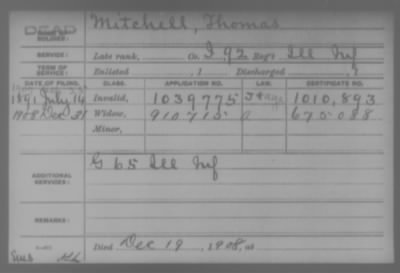 DEAD
Mitchell, Thomas
NAME OF SOLDIER:
SERVICE: Late rank, Co. I 92 Reg't Ill Inf
TERM OF SERVICE: Enlisted , 1 Discharged , 1
DATE OF FILING. CLASS. APPLICATION NO. LAW. CERTIFICATE NO.
1891 July 14 Invalid, 1039775 1010,893
1908 Dec 31 Widow, 910715 675088
Minor,
ADDITIONAL SERVICES: G 65 Ill Inf
REMARKS:
Died Dec 19, 1908, at